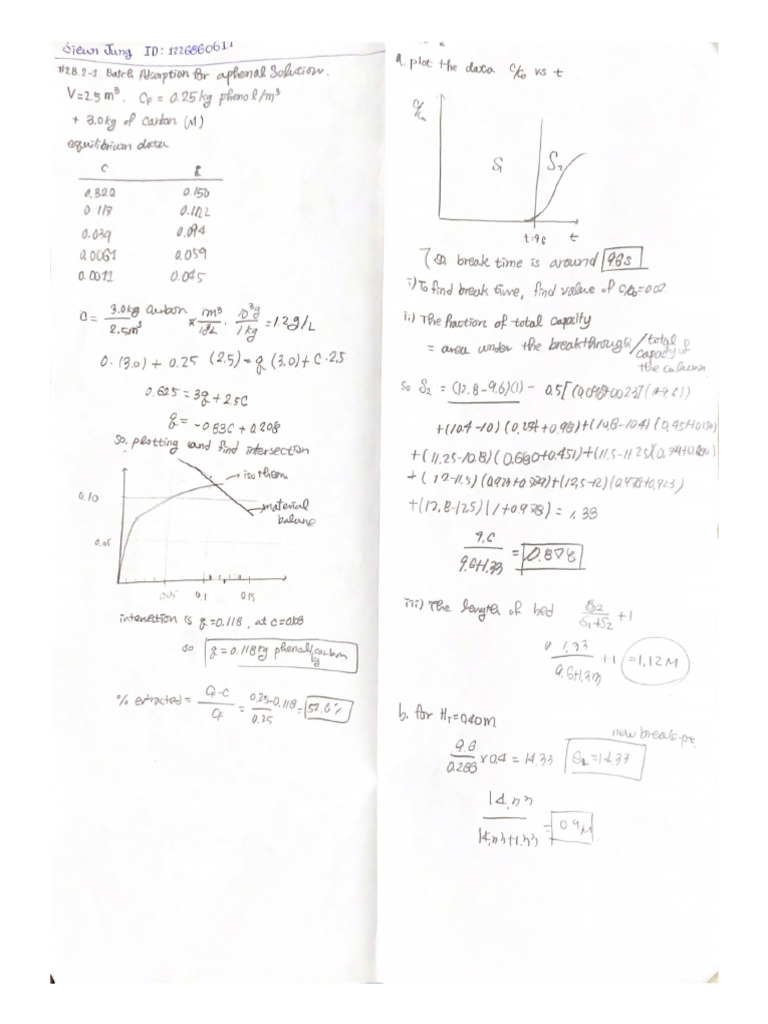 Siewn Jung ID: 1226860611
#28.2-1. Batch Adsorption for a phenol Solution.
V=2.5 m³. C_F = 0.25 kg phenol/m³
+ 3.0kg of Carbon (M)
equilibrium data
C q
0.322 0.150
0.118 0.122
0.039 0.094
0.0061 0.059
0.0011 0.045
C = 3.0kg carbon / 2.5m³ × 1m³ / · 10³g / 1kg = 1.2g/L
0.(3.0) + 0.25 (2.5) = q (3.0) + C·2.5
0.625 = 3q + 2.5C
q = -0.83C + 0.208
so, plotting and find intersection
isotherm
material balance
0.10
0.05
0.05 0.1 0.15
intersection is q=0.118, at c=
so q = 0.118kg phenol/kg carbon
% extracted = C_F-C / C_F = 0.25-0.118 / 0.25 =
a. plot the data c/c₀ vs t
c/c₀
S₁
S₂
t=9.6 t
break time is around
i) To find break time, find value of c/c₀=0.02.
ii) The fraction of total capacity
= area under the breakthrough / total capacity of the column
so S₂ = (12.8-9.6)(1) - 0.5[
+(10.4-10)
+(11.25-10.8)(0.690+0.451)+(11.5-11.25)
+(12-11.5)
+(12.8-12.5)(1+0.978)
9.6 / 9.6+1.33 = 0.878
iii) The length of bed S₂ / S₁+S₂ + 1
+1 = 1.12M
b. for H_T=0.40m
× 0.4 = 14.33
new break pt.
=14.33
14.33 / 14.33+1.33